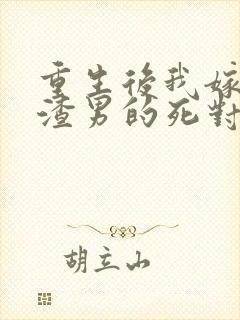 重生後我嫁
渣男的死對
胡立山